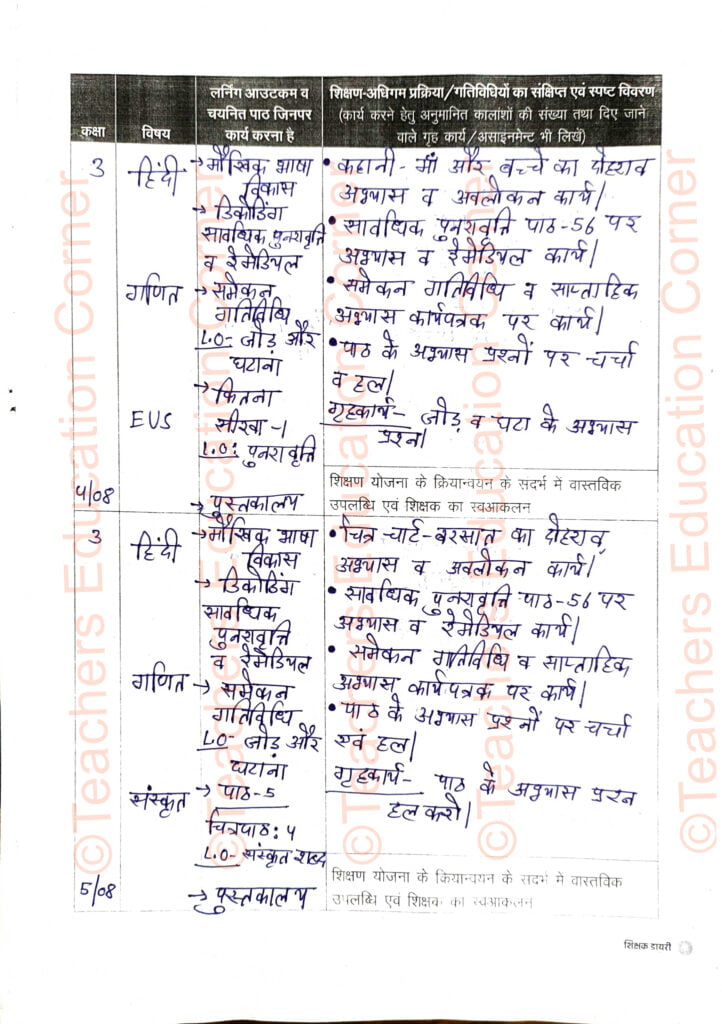 कक्षा
विषय
लर्निंग आउटकम व
चयनित पाठ जिनपर
कार्य करना है
शिक्षण-अधिगम प्रक्रिया/गतिविधियों का संक्षिप्त एवं स्पष्ट विवरण
(कार्य करने हेतु अनुमानित कालांशों की संख्या तथा दिए जाने
वाले गृह कार्य/असाइनमेंट भी लिखें)
3
हिंदी
→ मौखिक भाषा
विकास
→ डिकोडिंग
सावधिक पुनरावृत्ति
व रेमेडियल
• कहानी - माँ और बच्चे का दोहराव
अभ्यास व अवलोकन कार्य।
• सावधिक पुनरावृत्ति पाठ-56 पर
अभ्यास व रेमेडियल कार्य।
गणित
→ समेकन
गतिविधि
L.O- जोड़ और
घटाना
• समेकन गतिविधि व साप्ताहिक
अभ्यास कार्यपत्रक पर कार्य।
• पाठ के अभ्यास प्रश्नों पर चर्चा
व हल।
EVS
→ कितना
सीखा -1
L.O: पुनरावृत्ति
गृहकार्य- जोड़ व घटा के अभ्यास
प्रश्न।
4/08
→ पुस्तकालय
शिक्षण योजना के क्रियान्वयन के संदर्भ में वास्तविक
उपलब्धि एवं शिक्षक का स्वआकलन
3
हिंदी
→ मौखिक भाषा
विकास
→ डिकोडिंग
सावधिक
पुनरावृत्ति
व रेमेडियल
• चित्र चार्ट - बरसात का दोहराव,
अभ्यास व अवलोकन कार्य।
• सावधिक पुनरावृत्ति पाठ-56 पर
अभ्यास व रेमेडियल कार्य।
गणित
→ समेकन
गतिविधि
L.O- जोड़ और
घटाना
• समेकन गतिविधि व साप्ताहिक
अभ्यास कार्यपत्रक पर कार्य।
• पाठ के अभ्यास प्रश्नों पर चर्चा
एवं हल।
संस्कृत
→ पाठ-5
चित्रपाठ: 4
L.O- संस्कृत शब्द
गृहकार्य- पाठ के अभ्यास प्रश्न
हल करो।
5/08
→ पुस्तकालय
शिक्षण योजना के क्रियान्वयन के संदर्भ में वास्तविक
उपलब्धि एवं शिक्षक का स्वआकलन
शिक्षक डायरी
©Teachers Education Corner
©Teachers Education Corner
©Teachers Education Corner
©Teachers Education Corner